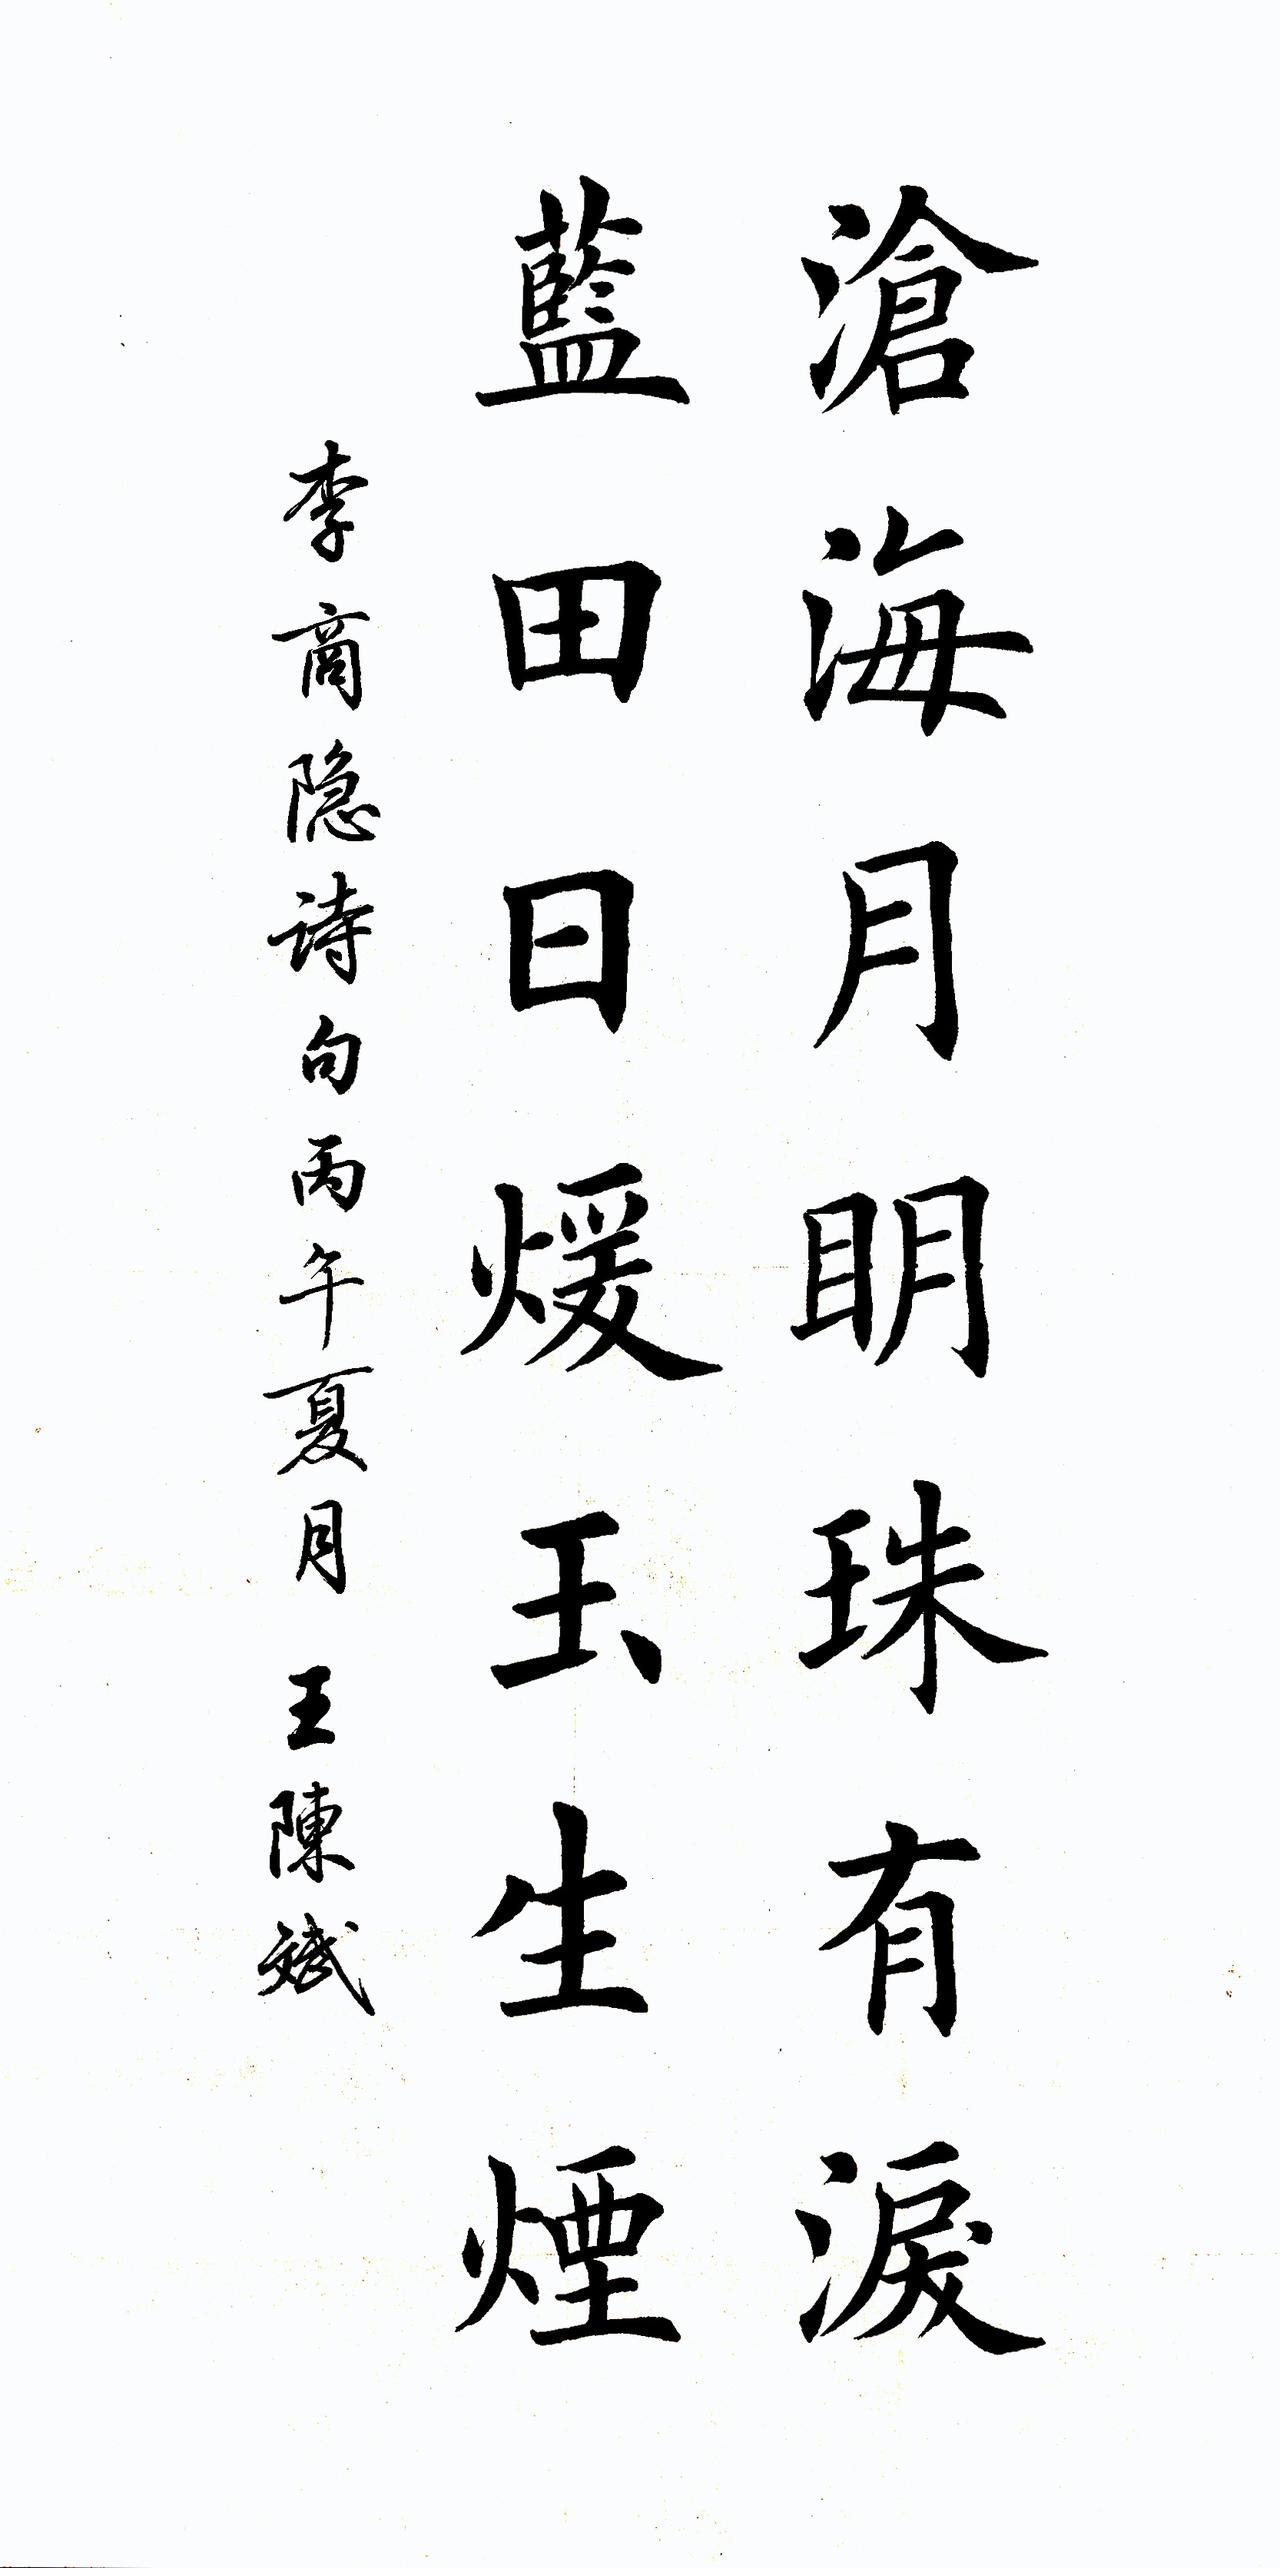 滄海月明珠有淚
藍田日煖玉生煙
李商隐诗句丙午夏月 王陳斌